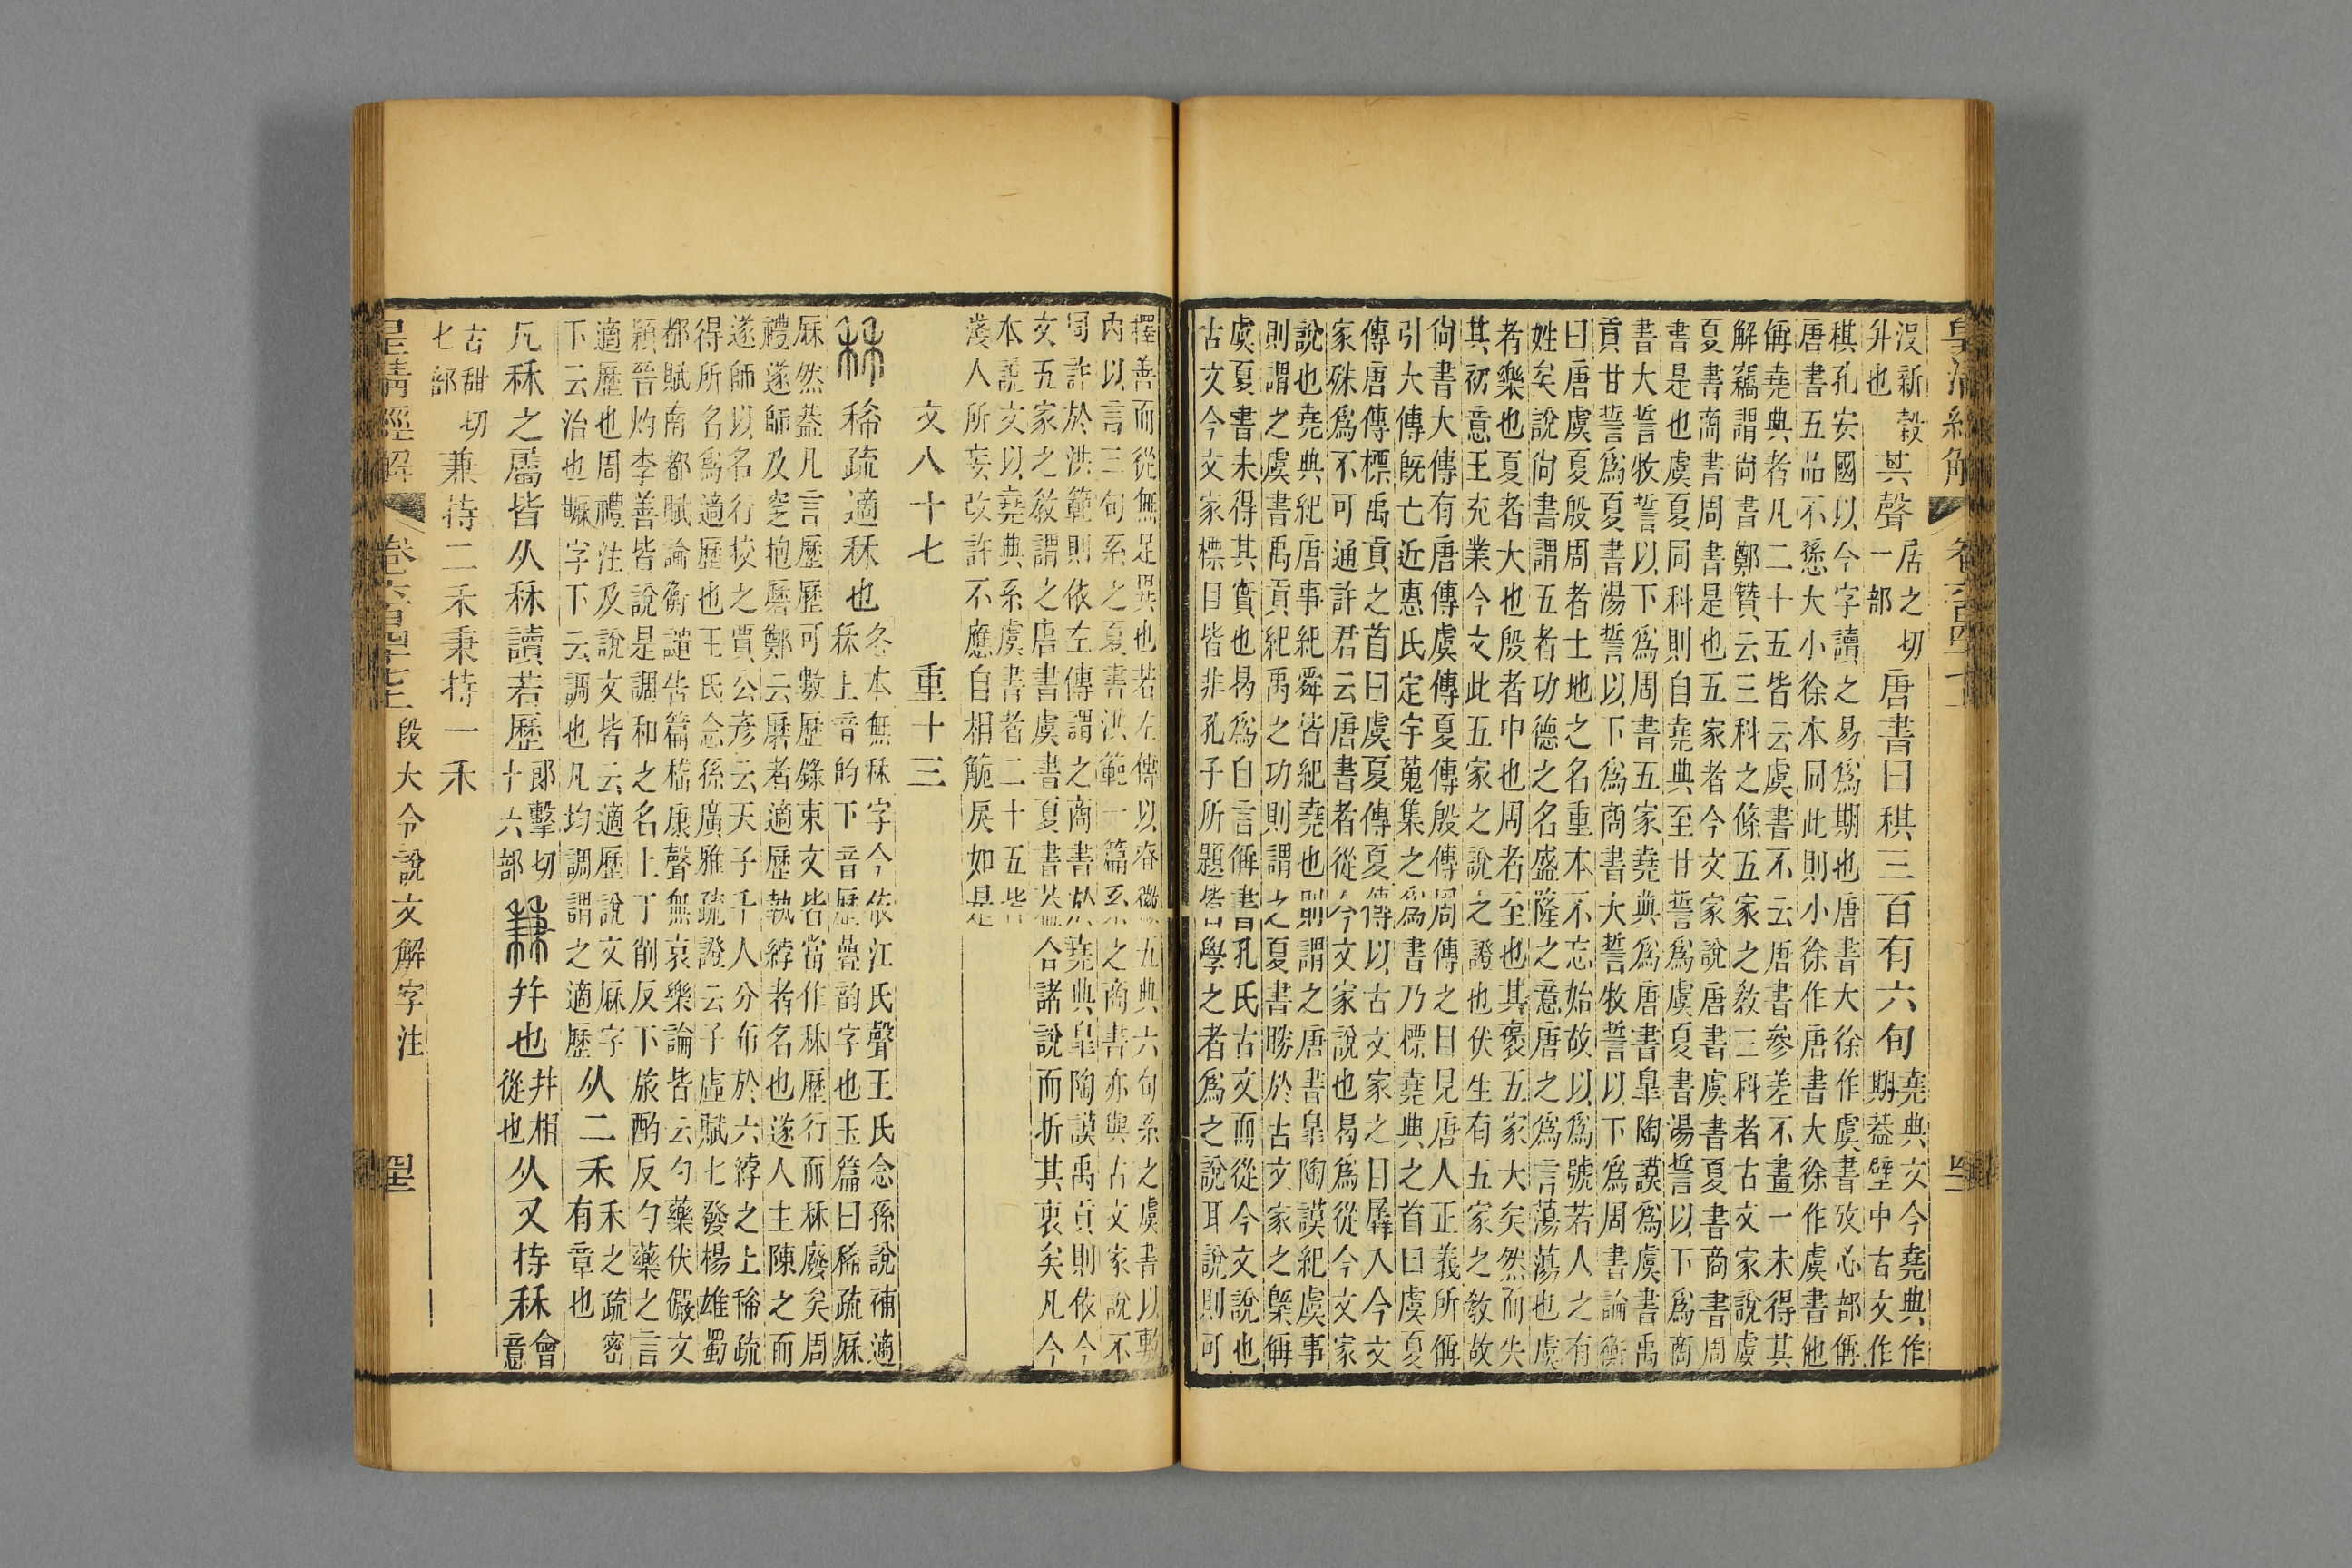 皇清經解 卷六百四十七
没新穀
升也
其聲
居之切
一部
唐書曰稘三百有六旬
堯典文今堯典作
期葢壁中古文作
稘孔安國以今字讀之易爲期也唐書大徐作虞書攷心部偁
唐書五品不愻大小徐本同此則小徐作唐書大徐作虞書他
偁堯典者凡二十五皆云虞書不云唐書參差不畫一未得其
解竊謂尙書鄭贊云三科之條五家之敎三科者古文家說虞
夏書商書周書是也五家者今文家說唐書虞書夏書商書周
書是也虞夏同科則自堯典至甘誓爲虞夏書湯誓以下爲商
書大誓牧誓以下爲周書五家堯典爲唐書皐陶謨爲虞書禹
貢甘誓爲夏書湯誓以下爲商書大誓牧誓以下爲周書論衡
曰唐虞夏殷周者士地之名重本不忘始故以爲號若人之有
姓矣說尙書謂五者功德之名盛隆之意唐之爲言蕩蕩也虞
者樂也夏者大也殷者中也周者至也其襃五家大矣然而失
其初意王充業今文此五家之說之證也伏生有五家之敎故
尙書大傳有唐傳虞傳夏傳殷傳周傳之目見唐人正義所偁
引大傳旣亡近惠氏定宇蒐集之爲書乃標堯典之首曰虞夏
傳唐傳標禹貢之首曰虞夏傳夏傳以古文家之目羼入今文
家殊爲不可通許君云唐書者從今文家說也曷爲從今文家
說也堯典紀唐事紀舜皆紀堯也則謂之唐書皐陶謨紀虞事
則謂之虞書禹貢紀禹之功則謂之夏書勝於古文家之槩偁
虞夏書未得其實也曷爲自言偁書孔氏古文而從今文說也
古文今文家標目皆非孔子所題皆學之者爲之說耳說則可
擇善而從無足異也若左傳以容徵五典六句系之虞書以敷
內以言三句系之夏書洪範一篇系之商書亦與古文家說不
同許於洪範則依左傳謂之商書於堯典皐陶謨禹貢則依今
文五家之敎謂之唐書虞書夏書葢合諸說而折其衷矣凡今
本說文以堯典系虞書者二十五皆
淺人所妄改許不應自相觤戾如是
文八十七 重十三
秝稀疏適秝也
各本無秝字今依江氏聲王氏念孫說補適
秝上音的下音歷疊韵字也玉篇曰稀疏厤
厤然葢凡言歷歷可數歷錄束文皆當作秝歷行而秝廢矣周
禮遂師及窆抱磿鄭云磿者適歷執綍者名也遂人主陳之而
遂師以名行挍之賈公彦云天子千人分布於六綍之上稀疏
得所名爲適歷也王氏念孫廣雅疏證云子虛賦七發楊雄蜀
都賦南都賦論衡譴告篇嵇康聲無哀樂論皆云勺藥伏儼文
穎晉灼李善皆說是調和之名上丁削反下旅酌反勺藥之言
適歷也周禮注及說文皆云適歷說文厤字
下云治也𤮺字下云調也凡均調謂之適歷
从二禾
禾之疏密
有章也
凡秝之屬皆从秝讀若歷
郎擊切
十六部
兼幷也
幷相
從也
从又持秝
會
意
古甜切
七部
兼持二禾秉持一禾
皇清經解 卷六百四十七上 段大令說文解字注